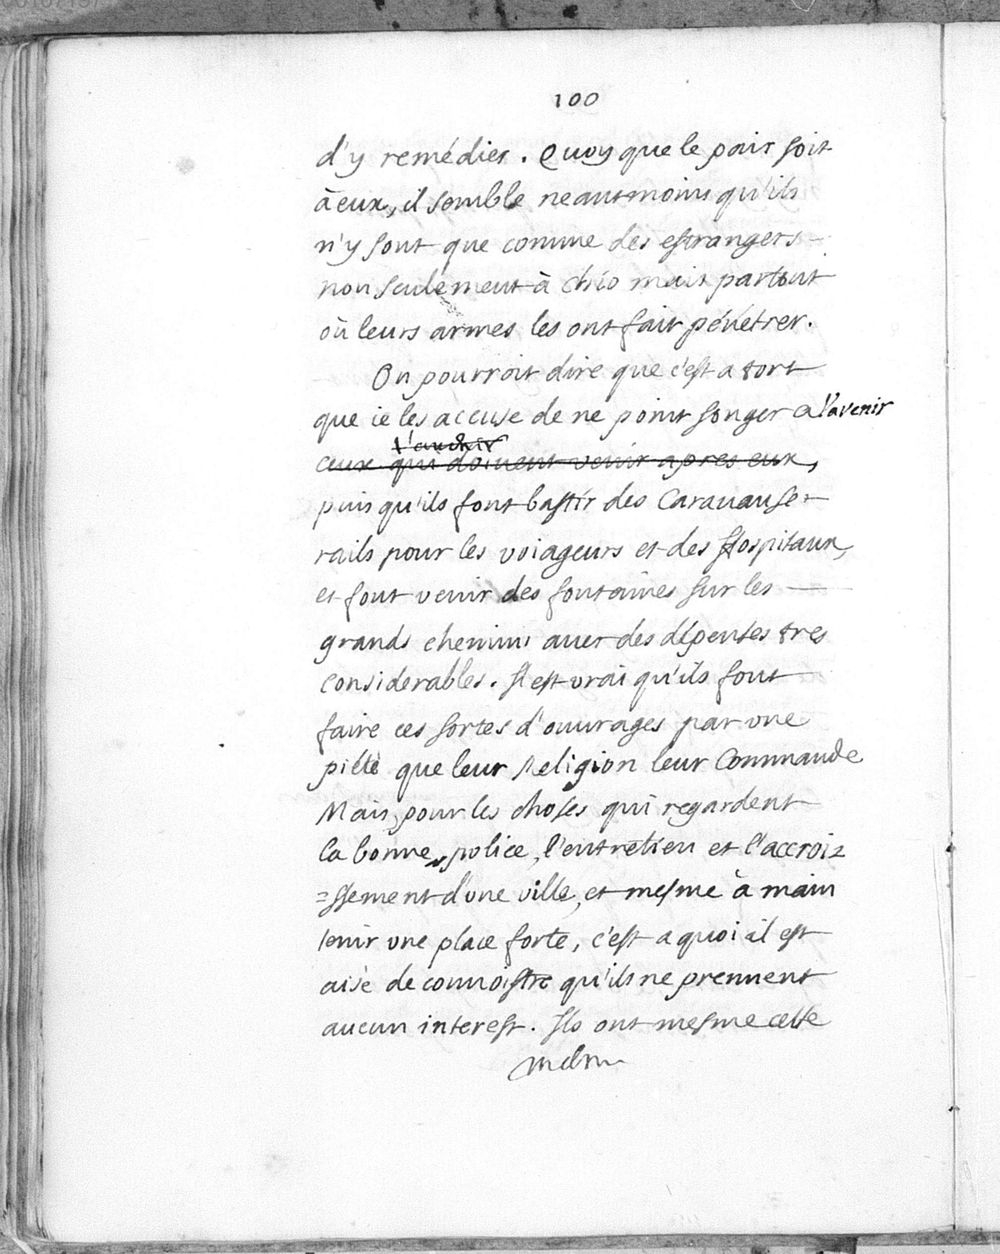 100
d'y remédier. Quoy que le pais soit
à eux, il semble neautmoins qu'ils
n'y sont que comme des estrangers
non seulement à chio mais partout
où leurs armes les ont fait pénétrer.
On pourroit dire que c'est a tort
que ie les accuse de ne point songer a l'avenir
ceux qui doivent venir apres eux,
puis qu'ils font bastir des Caravanse-
rails pour les voiageurs et des Hospitaux,
et font venir des fontaines sur les
grands chemins avec des dépenses tres
considerables. Il est vrai qu'ils font
faire ces sortes d'ouvrages par une
pieté que leur Religion leur Commande
Mais, pour les choses qui regardent
la bonne police, l'entretien et l'accrois
=ssement d'une ville, et mesme à main
tenir une place forte, c'est a quoi il est
aisé de connoistre qu'ils ne prennent
aucun interest. Ils ont mesme cette